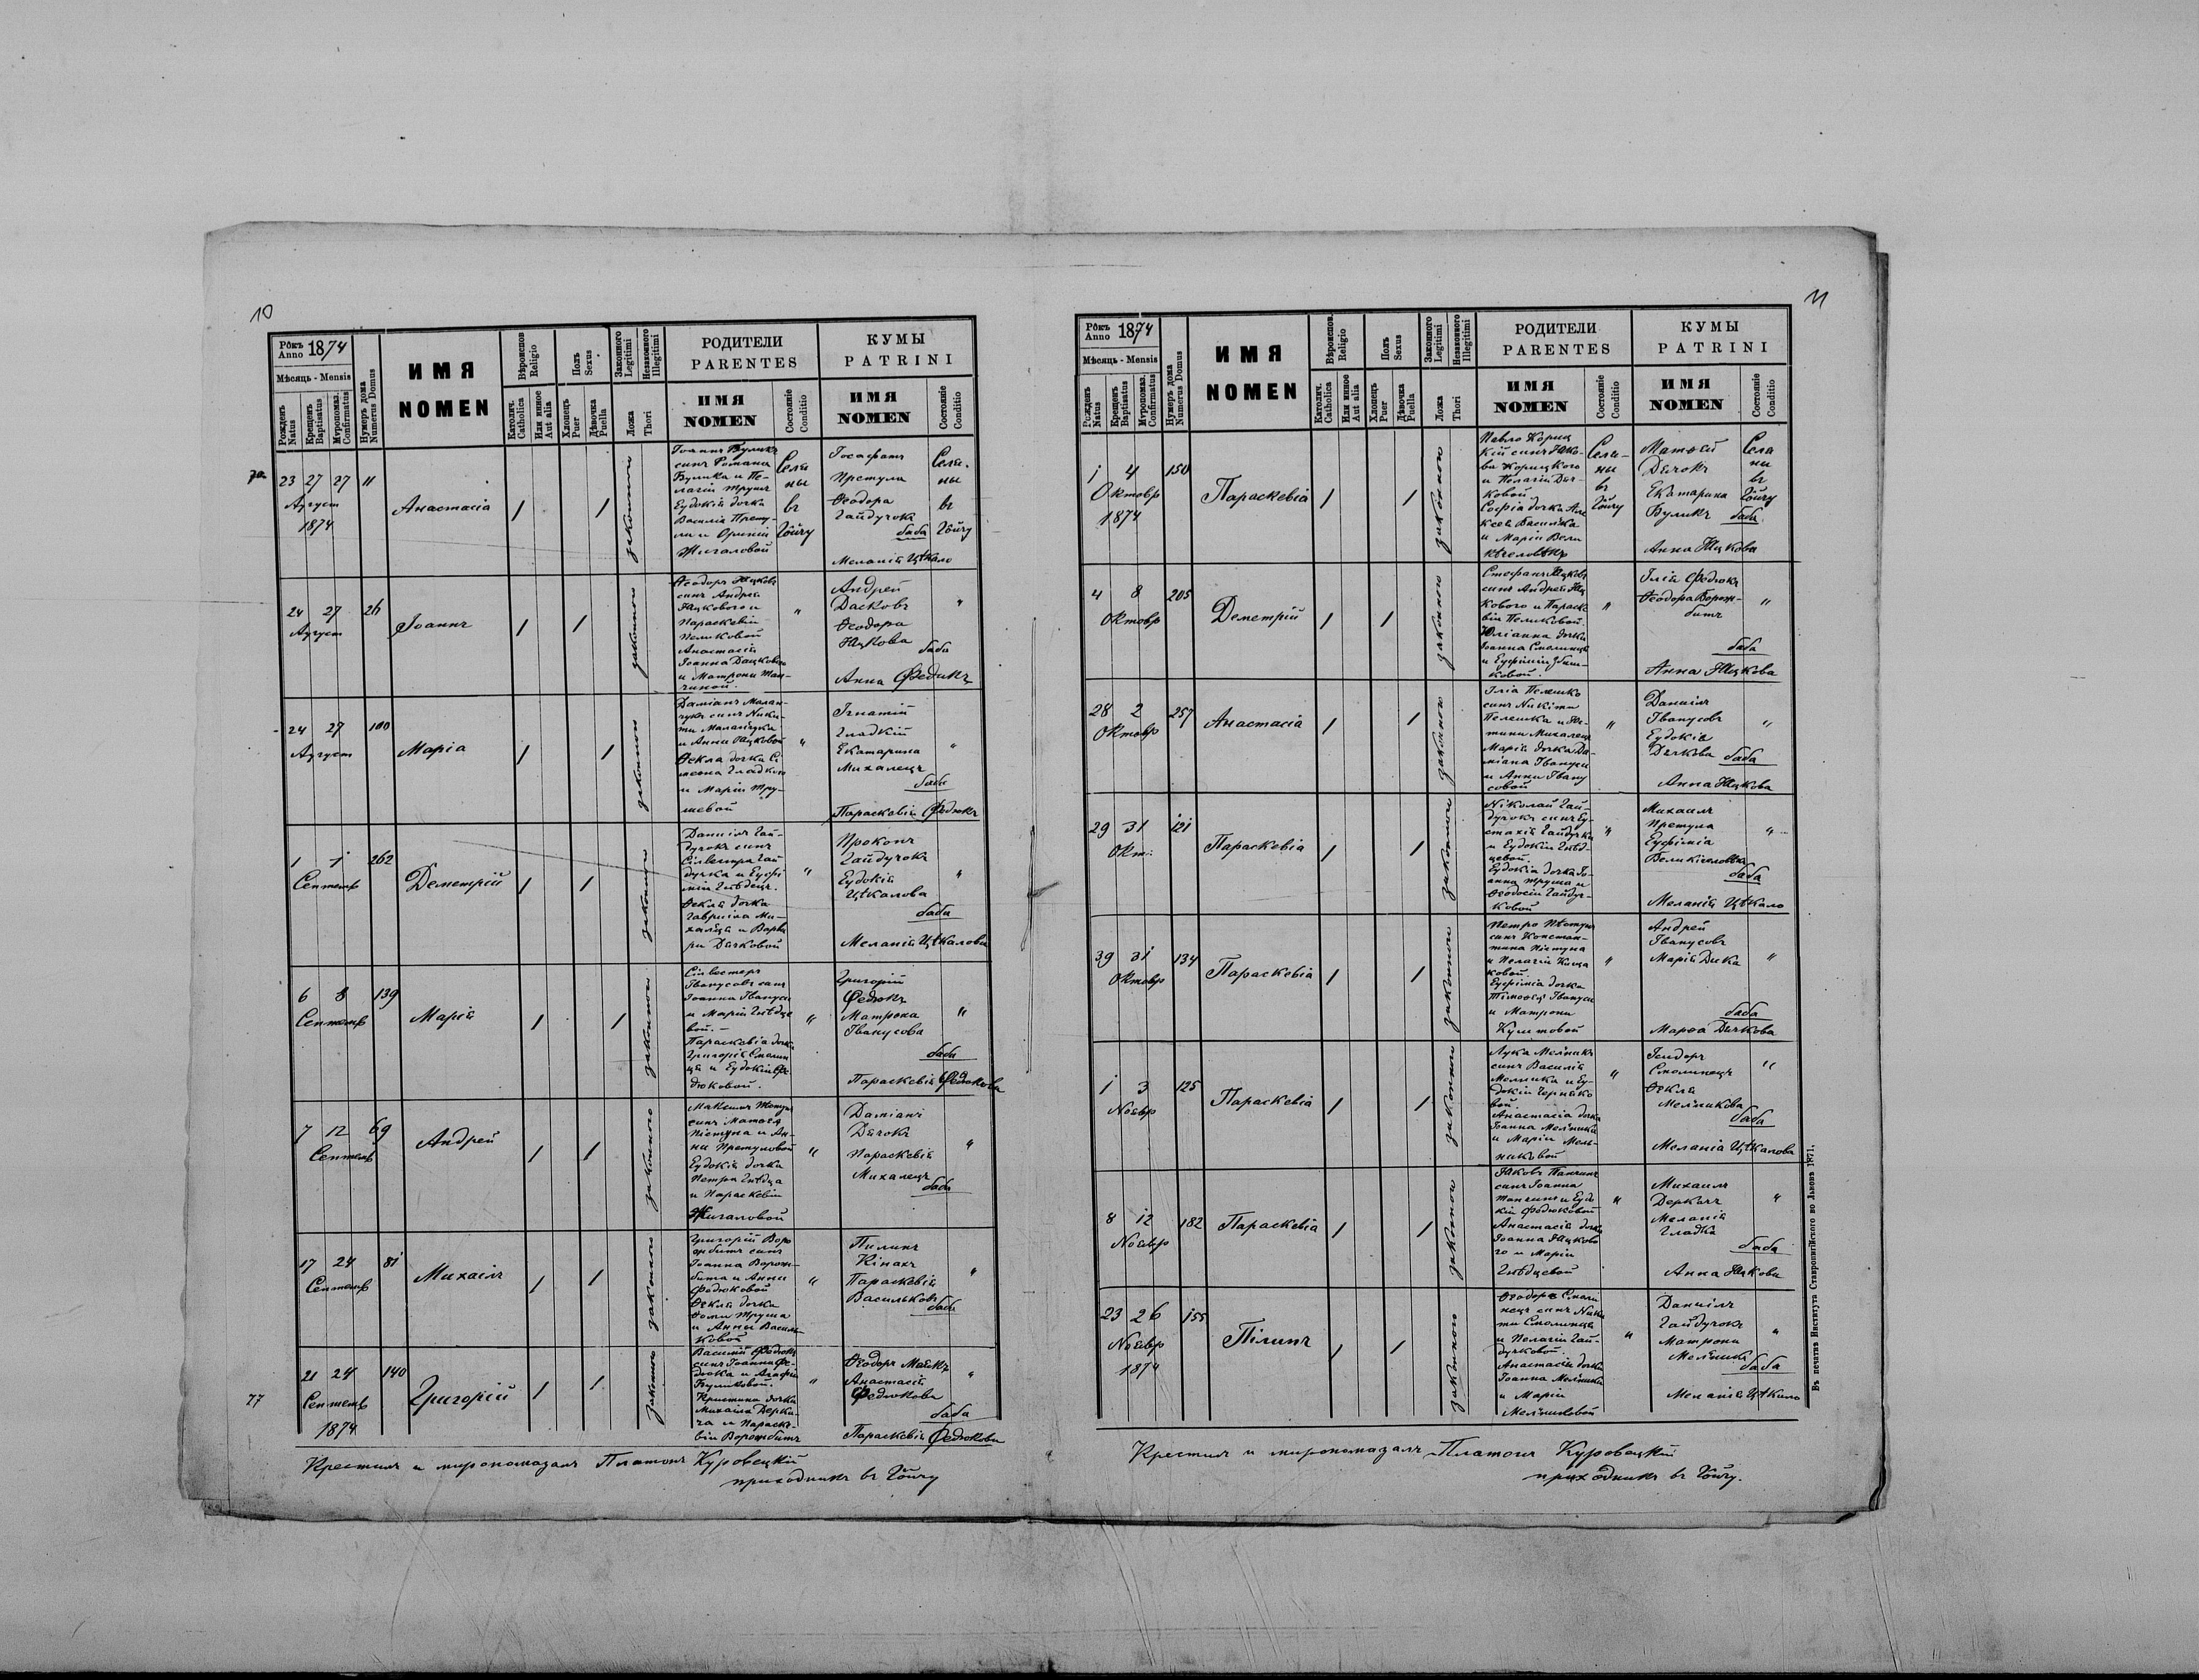 10
Рôкъ Anno 1874
Мѣсяць - Mensis
Рожденъ Natus
Крещенъ Baptisatus
Мѵропомаз. Confirmatus
Нумеръ дома Numerus Domus
ИМЯ
NOMEN
Вѣроисповѣд. Religio
Католич. Catholica
Или инное Aut alia
Полъ Sexus
Хлопець Puer
Дѣвочка Puella
Законного Legitimi
Незаконного Illegitimi
Ложа Thori
РОДИТЕЛИ
PARENTES
ИМЯ
NOMEN
Состояніе Conditio
КУМЫ
PATRINI
ИМЯ
NOMEN
Состояніе Conditio
23 27 27 11
Август
1874
Анастасіа
законного
Іоаннъ Буликъ
синъ Романа
Булика и Пе-
лагіи
Еудокія дочка
Василія Прету-
ли и
Жигаловой
Сели
ны
въ
Гôйчу
Іосафатъ
Претула
Ѳеодора
Гайдучокъ
баба
Меланія Цѣкало
Сели-
ны
въ
Гôйчу
24 27 26
Август
Іоаннъ
законного
Ѳеодоръ Яцковъ
синъ Андрея
Яцкового и
Параскевіи
Пеликовой
Анастасія
Іоанна Дацкового
и Матрони
"
Андрей
Дасковъ
Ѳеодора
Яцкова
баба
Анна Федюкъ
"
24 27 100
Август
Маріа
законного
Даміанъ Малан-
чукъ синъ Ники-
ти Маланчука
и Анни Яцковой
Ѳекла дочка Си
меона Гладкого
и Маріи Тру-
шевой
"
Ігнатій
Гладкій
Екатарина
Михалецъ
баба
Параскевія Федюкъ
"
1 1 262
Септемв
Деметрій
законного
Даниилъ Гай-
дучокъ синъ
Сілвестра Гай
дучка и Еуфи
міи Гнѣдецъ.
Ѳекля дочка
Гавриіла Ми-
халця и Варва
ри Дячковой
"
Прокопъ
Гайдучокъ
Еудокія
Цѣкалова
баба
Меланія Цѣкалова
"
6 8 139
Септемв
Марія
законного
Сілвестеръ
Іванусовъ синъ
Іоанна Івануси
и Маріи Гнѣдце
вой. -
Параскевіа дочка
Григорія Смолин
ця и Еудокіи Фе
дюковой.
"
Григорій
Федюкъ
Матрона
Іванусова
баба
Параскевія Федюкова
"
7 12 69
Септемв
Андрей
законного
синъ Матѳея
Пістуна и Ан-
ни Претуловой
Еудокія дочка
Петра Гнѣдца
и Параскевіи
Жигаловой
"
Даміанъ
Дячокъ
Параскевія
Михалецъ
баба
"
17 24 81
Септемв
Михаілъ
законного
Григорій Воро
жбитъ синъ
Іоанна Ворож-
бита и Анни
Федюковой
Ѳекля дочка
Ѳоми Труша
и Анни Василь-
ковой
"
Пилипъ
Кінахъ
Параскевія
Васильковъ
баба
"
77
21 24 140
Септемв
1874
Григорій
законного
Василій Федюкъ
синъ Іоанна Фе-
дюка и Агафіи
Буликовой.
Христина дочка
Михаіла Дерка-
ча и Параске-
віи Ворожбитъ
"
Ѳеодоръ Маякъ
Анастасія
Федюкова
баба
Параскевія Федюкова
"
Крестилъ и миропомазалъ Платонъ Куровецкій
приходникъ въ Гôйчу
11
Рôкъ Anno 1874
Мѣсяць - Mensis
Рожденъ Natus
Крещенъ Baptisatus
Мѵропомаз. Confirmatus
Нумеръ дома Numerus Domus
ИМЯ
NOMEN
Вѣроисповѣд. Religio
Католич. Catholica
Или инное Aut alia
Полъ Sexus
Хлопець Puer
Дѣвочка Puella
Законного Legitimi
Незаконного Illegitimi
Ложа Thori
РОДИТЕЛИ
PARENTES
ИМЯ
NOMEN
Состояніе Conditio
КУМЫ
PATRINI
ИМЯ
NOMEN
Состояніе Conditio
1 4 150
Октовр
1874
Параскевіа
законного
Павло Кориц
кій синъ Яко-
ва Корицкого
и Пелагіи Дяч-
ковой
Софіа дочка Але
ксея Василка
и Маріи Вели
Сели-
ны
въ
Гôйчу
Матѳей
Дячокъ
Екатарина
Буликъ баба
Анна Яцкова
Села
ни
въ
Гôйчу
4 8 205
Октовр
Деметрій
законного
Стефанъ Яцковъ
синъ Андрея Яц
кового и Параске
віи Пеликовой.
Юліанна дочка
Іоанна Смолинця
и Еуфіміи
ковой.
"
Ілія Федюкъ
Ѳеодора Ворож-
битъ
баба
Анна Яцкова
"
28 2 257
Октовр
Анастасіа
законного
Іліа Пелешко
синъ Никіти
Пелешка и
Михалецъ
Марія дочка Да-
міана Івануси
и Анни Івану
совой
"
Даниілъ
Іванусовъ
Еудокія
Дячкова баба
Анна Яцкова
"
29 31 121
Окт.
Параскевіа
законного
Ніколай Гай-
дучокъ синъ Еу-
стахія Гайдучка
и Еудокіи Гнѣд-
цевой.
Еудокіа дочка Іо-
анна Труша и
Ѳеодосіи Гайдуч-
ковой
"
Михаилъ
Претула
Еуфіміа
баба
Меланія Цѣкало
"
39 31 134
Октовр
Параскевіа
законного
Петро Пѣстунъ
синъ Констан-
тина Пістуна
и Пелагіи
ковой.
Еуфіміа дочка
Тімоѳея Івануси
и Матрони
"
Андрей
Іванусовъ
Марія Дика
баба
Марѳа Дячкова
"
1 3 125
Ноевр
Параскевіа
законного
Лука Мелникъ
синъ Василія
Мелника и Еу-
докіи
вой.
Анастасіа дочка
Іоанна Мелника
и Маріи Мель-
никовой
"
Смолинецъ
Ѳекля
Мелникова
баба
Меланіа Цѣкалова
"
8 12 182
Ноевр
Параскевіа
законного
Яковъ
синъ Іоанна
и Еудо
кіи Федюковой
Анастасія дочка
Іоанна Яцково
го и Маріи
Гнѣдцевой
"
Михаилъ
Деркачъ
Меланія
Гладка
баба
Анна Яцкова
"
23 26 155
Ноевр
1874
Пілипъ
законного
Ѳеодоръ Смоли
нецъ синъ Ники
ти Смолинця
и Пелагіи Гай-
дучковой.
Анастасія дочка
Іоанна Мелника
и Маріи
Мелниковой
"
Даниілъ
Гайдучокъ
Матрона
Мелникъ
баба
Меланія Цѣкало
"
Крестилъ и миропомазалъ Платонъ Куровецкій
приходникъ въ Гôйчу.
Въ печатнѣ Института Ставропигійского во Львовѣ 1871.